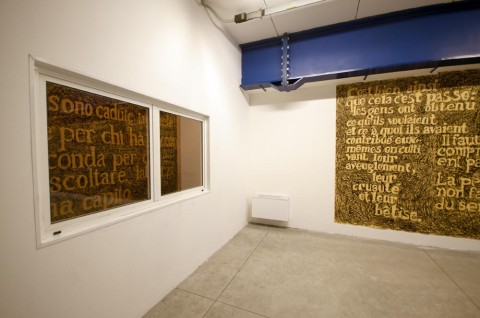 sono cadute in
per chi ha
conda per
scoltare la
ha capito
C'est bien ainsi
que cela s'est passé:
les gens ont obtenu
ce qu'ils voulaient
et ce à quoi ils avaient
contribué eux-
mêmes en culti
vant leur
aveuglement,
leur
cruauté
et leur
bêtise.
Il faut
comp
ent pa
La Pr
non l
du se